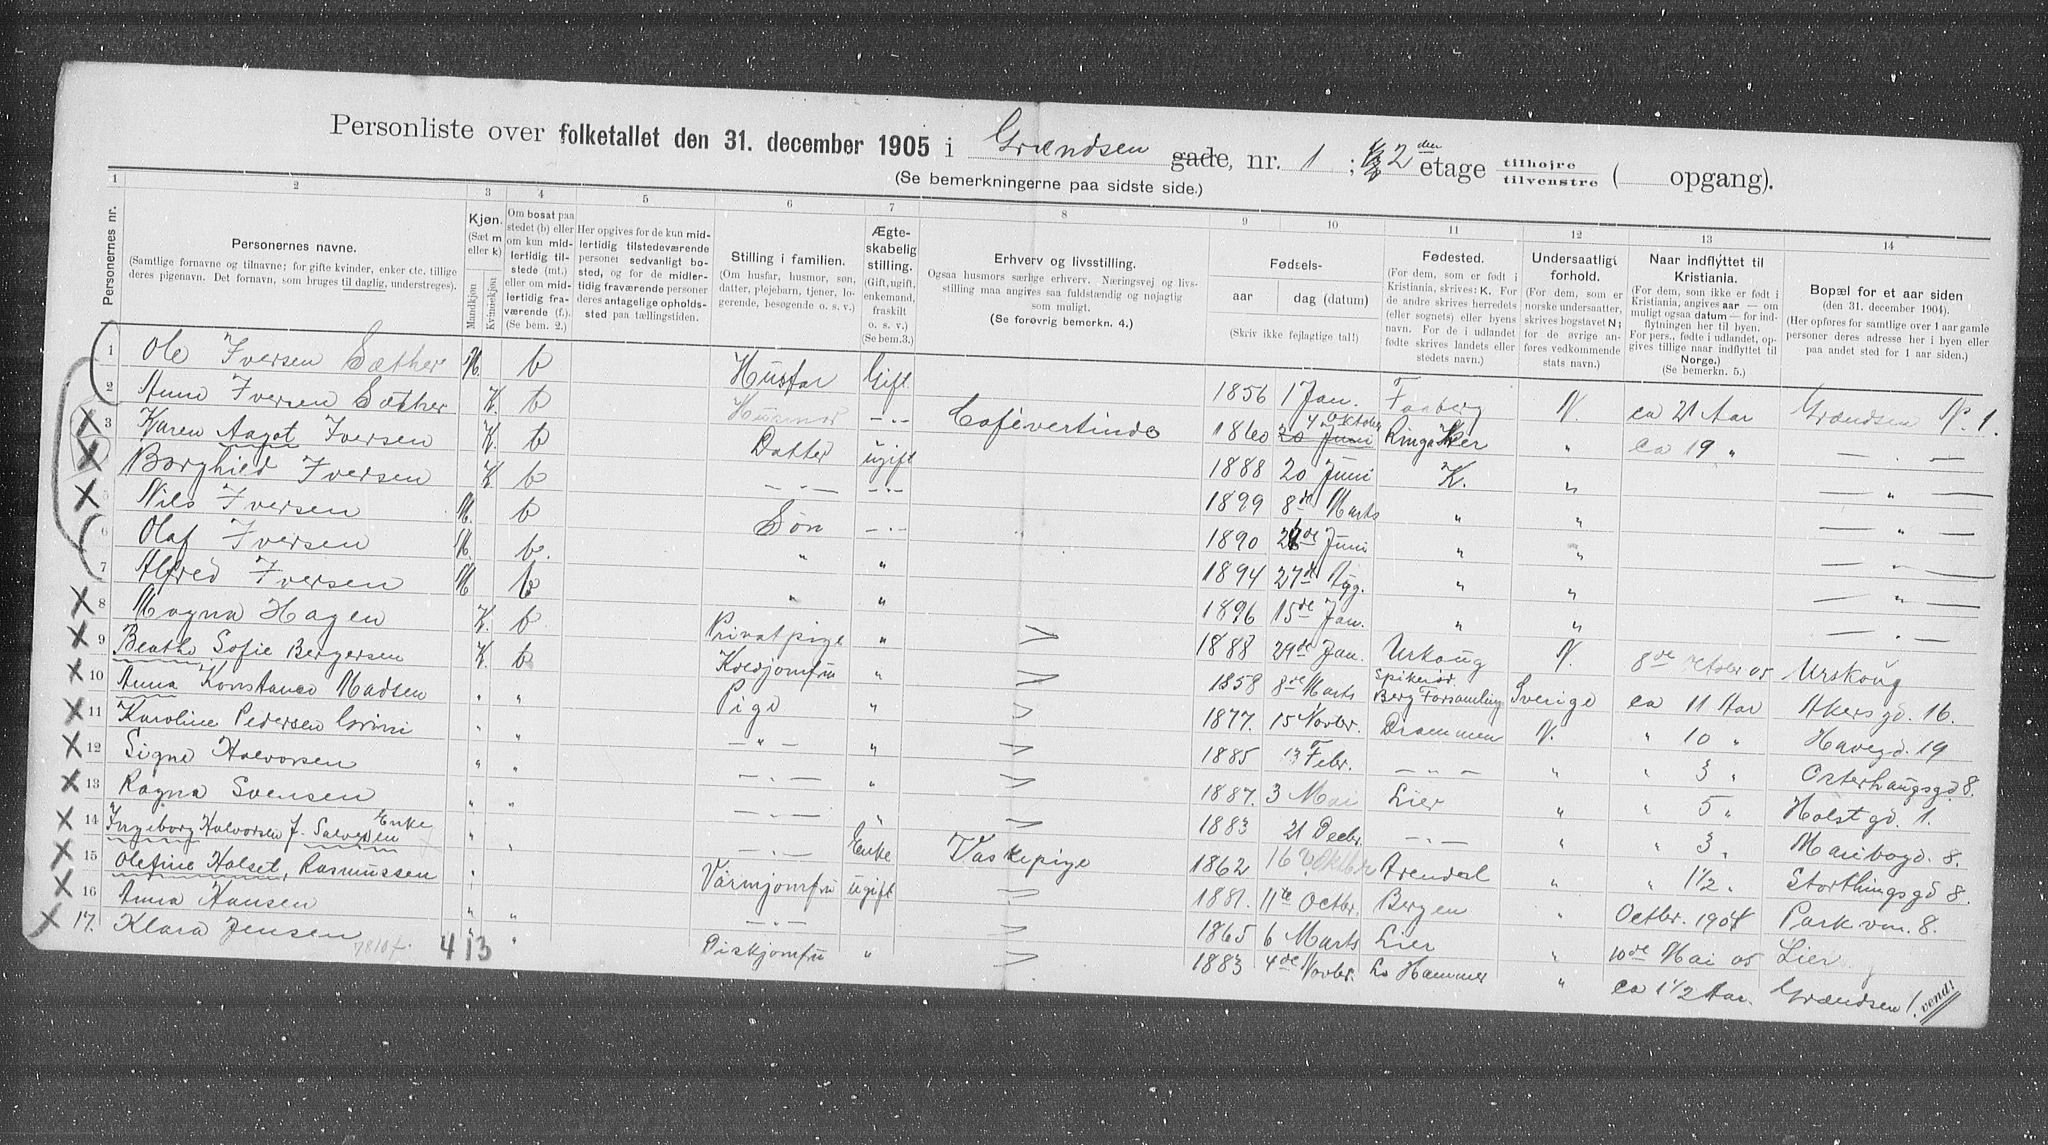 Personliste over folketallet den 31. december 1905 i Grændsen gade, nr. 1 ; 2 den etage tilhøjre tilvenstre ( opgang).
(Se bemerkningerne paa sidste side.)
1 2 3 4 5 6 7 8 9 10 11 12 13 14
Personernes nr.
Personernes navne.
(Samtlige fornavne og tilnavne; for gifte kvinder, enker etc. tillige
deres pigenavn. Det fornavn, som bruges til daglig, understreges).
Kjøn.
(Sæt m
eller k)
Mandkjøn
Kvindekjøn
Om bosat paa
stedet (b) eller
om kun mid-
lertidig til-
stede (mt.)
eller om mid-
lertidig fra-
værende (f.).
(Se bem. 2.)
Her opgives for de kun mid-
lertidig tilstedeværende
personer sedvanligt bo-
sted, og for de midler-
tidig fraværende personer
deres antagelige opholds-
sted paa tællingstiden.
Stilling i familien.
(Om husfar, husmor, søn,
datter, plejebarn, tjener, lo-
gerende, besøgende o. s. v.)
Ægte-
skabelig
stilling.
(Gift, ugift,
enkemand,
fraskilt
o. s. v.)
(Se bem.3.)
Erhverv og livsstilling.
Ogsaa husmors særlige erhverv. Næringsvej og livs-
stilling maa angives saa fuldstændig og nøjagtig
som muligt.
(Se forøvrig bemerkn. 4.)
Fødsels-
aar
dag (datum)
(Skriv ikke fejlagtige tal!)
Fødested.
(For dem, som er født i
Kristiania, skrives: K. For
de andre skrives herredets
(eller sognets) eller byens
navn. For de i udlandet
fødte skrives landets eller
stedets navn.)
Undersaatligt
forhold.
(For dem, som er
norske undersaatter,
skrives bogstavet N;
for de øvrige an-
føres vedkommende
stats navn).
Naar indflyttet til
Kristiania.
(For dem, som ikke er født i
Kristiania, angives aar — om
muligt ogsaa datum — for ind-
flytningen her til byen.
For pers., fødte i udlandet, op-
gives tillige naar indflyttet til
Norge.)
(Se bemerkn. 5.)
Bopæl for et aar siden
(den 31. december 1904).
(Her opføres for samtlige over 1 aar gamle
personer deres adresse her i byen eller
paa andet sted for 1 aar siden.)
1 Ole Iversen Sæther M. b Husfar Gift 1856 1 Jan. Faaberg N ca 21 Aar Grændsen No. 1.
2 Anna Iversen Sæther K. b Husmor - " - Cafévertinde 1860 4 Oktober 20 Juni Ringsaker " ca 19 " — " —
3 Karen Aagot Iversen K. b Datter ugift 1888 20 Juni K. " — " —
Borghild Iversen K b — " — — " — 1899 8de Marts " " — " —
5 Nils Iversen M. b Søn — " — 1890 de Juni " " — " —
6 Olaf Iversen M. b. " " 1894 27de Aug. " " — " —
7 Alfred Iversen M b " " 1896 15de Jan. " " — " —
8 Magna Hagen K. b. Privatpige " 1888 29de Jan. Urskoug N. 8de Octbr 05 Urskoug
9 Beathe Sofie Bergersen K. b Koldjomfru " 1858 8de Marts Berg Forsamling Sverige ca 11 Aar Akersgd. 16.
10 Anna Konstance Madsen " " Pige " 1877. 15 Novbr. Drammen N. " 10 " Havegd. 19
11 Karoline Pedersen Grini " " — " — " 1885 13 Febr. — " — " " 3 " Osterhaugsgd. 8.
12 Signe Halvorsen " " — " — " 1887. 3 Mai Lier " " 5 " Holstgd. 1.
13 Ragna Svensen " " — " — " 1883 21 Decbr. — " — " " 3 " Maribogd. 8.
14 Ingeborg Halvorsen f. Salvesen Enke " " — " — Enke Vaskepige 1862 16 Oktober Arendal " " 1½ " Storthingsgd 8.
15 Olefine Holset, Rasmussen " Varmjomfru ugift 1881. 11te Octbr. Bergen " Octbr. 1904 Parkvn. 8.
16 Anna Hansen " " — " — 1865 6 Marts Lier " 10de Mai 05 Lier
17. Klara Jensen " " Diskjomfru " 1883 4de Novbr. Lo Hammer " ca 1½ Aar. Grændsen 1.
4 13
vend!